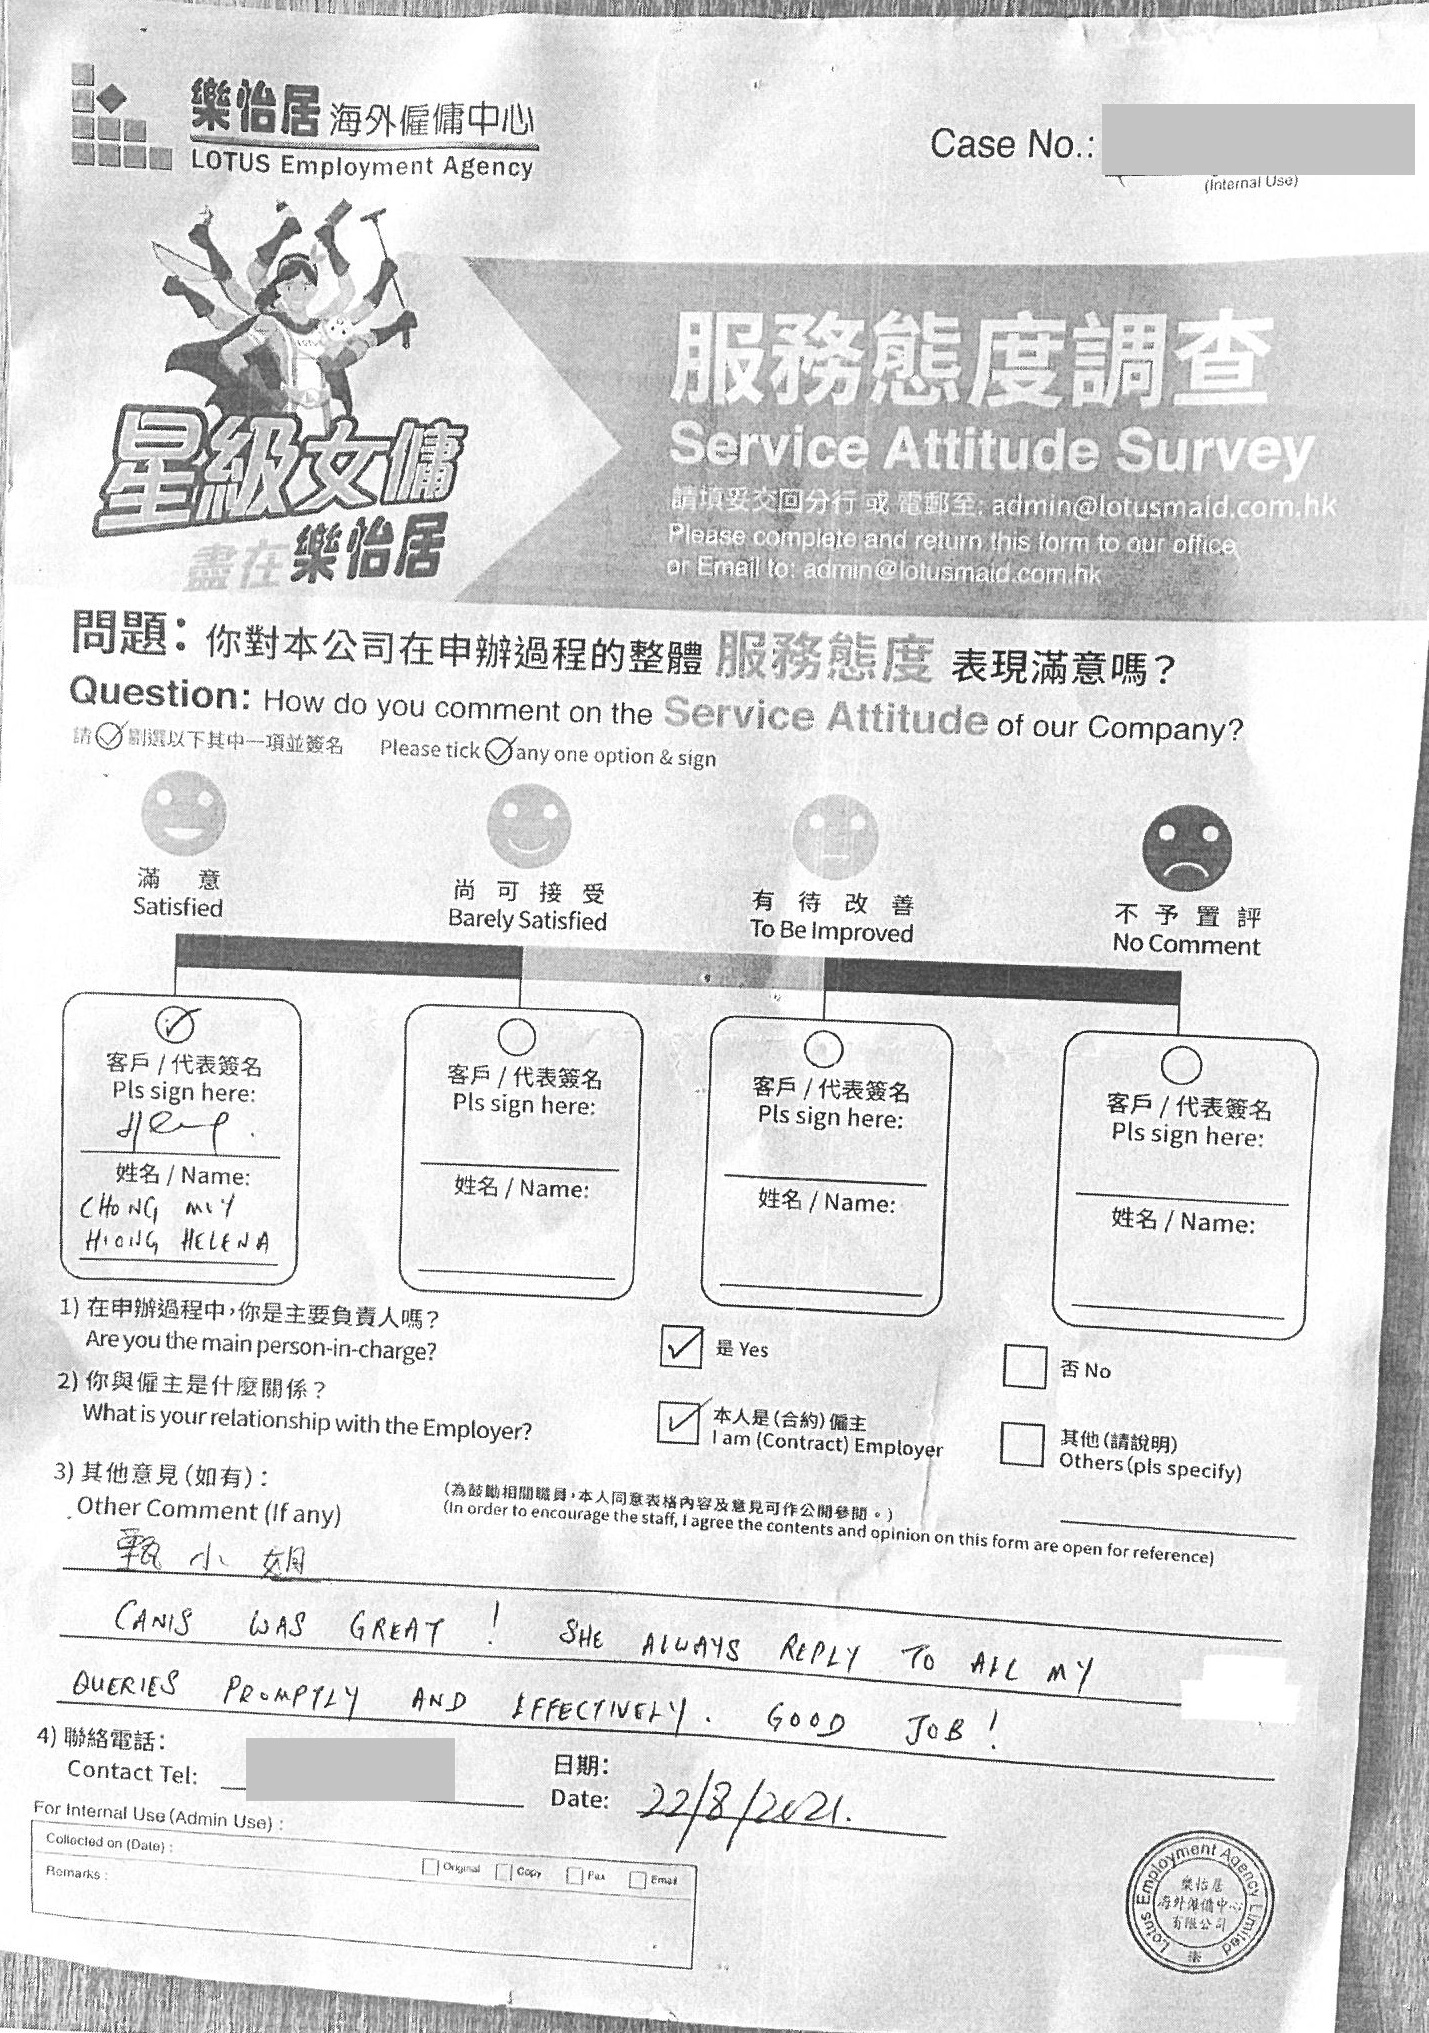 樂怡居 海外僱傭中心
LOTUS Employment Agency
Case No.:
(Internal Use)
星級女傭
盡在樂怡居
服務態度調查
Service Attitude Survey
請填妥交回分行 或 電郵至: admin@lotusmaid.com.hk
Please complete and return this form to our office
or Email to: admin@lotusmaid.com.hk
問題: 你對本公司在申辦過程的整體 服務態度 表現滿意嗎?
Question: How do you comment on the Service Attitude of our Company?
請 剔選以下其中一項並簽名 Please tick any one option & sign
滿意 尚可接受 有待改善 不予置評
Satisfied Barely Satisfied To Be Improved No Comment
客戶 / 代表簽名 客戶 / 代表簽名 客戶 / 代表簽名 客戶 / 代表簽名
Pls sign here: Pls sign here: Pls sign here: Pls sign here:
姓名 / Name: 姓名 / Name: 姓名 / Name: 姓名 / Name:
CHONG MUY
HIONG HELENA
1) 在申辦過程中,你是主要負責人嗎? 是 Yes 否 No
Are you the main person-in-charge?
2) 你與僱主是什麼關係? 本人是(合約)僱主 其他(請說明)
What is your relationship with the Employer? I am (Contract) Employer Others (pls specify)
3) 其他意見(如有): (為鼓勵相關職員,本人同意表格內容及意見可作公開參閱。)
Other Comment (If any) (In order to encourage the staff, I agree the contents and opinion on this form are open for reference)
甄小姐
CANIS WAS GREAT! SHE ALWAYS REPLY TO ALL MY
QUERIES PROMPTLY AND EFFECTIVELY. GOOD JOB!
4) 聯絡電話: 日期:
Contact Tel: Date: 22/8/2021.
For Internal Use (Admin Use) :
Collected on (Date) : Original Copy Fax Email
Remarks :
Lotus Employment Agency Limited
樂怡居
海外僱傭中心
有限公司